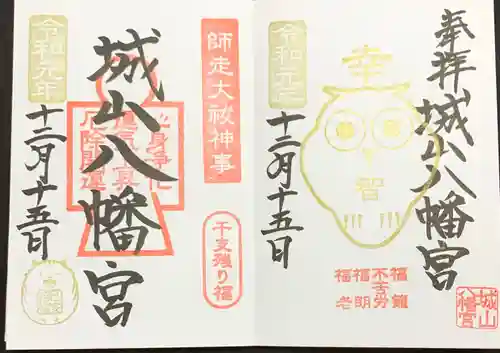 奉拝
城山八幡宮
幸
智
令和元年
十二月十五日
福籠
不苦労
福明
福老
城山
八幡宮
師走大祓神事
干支残り福
城山八幡宮
心身浄化
厄除開運
令和元年
十二月十五日